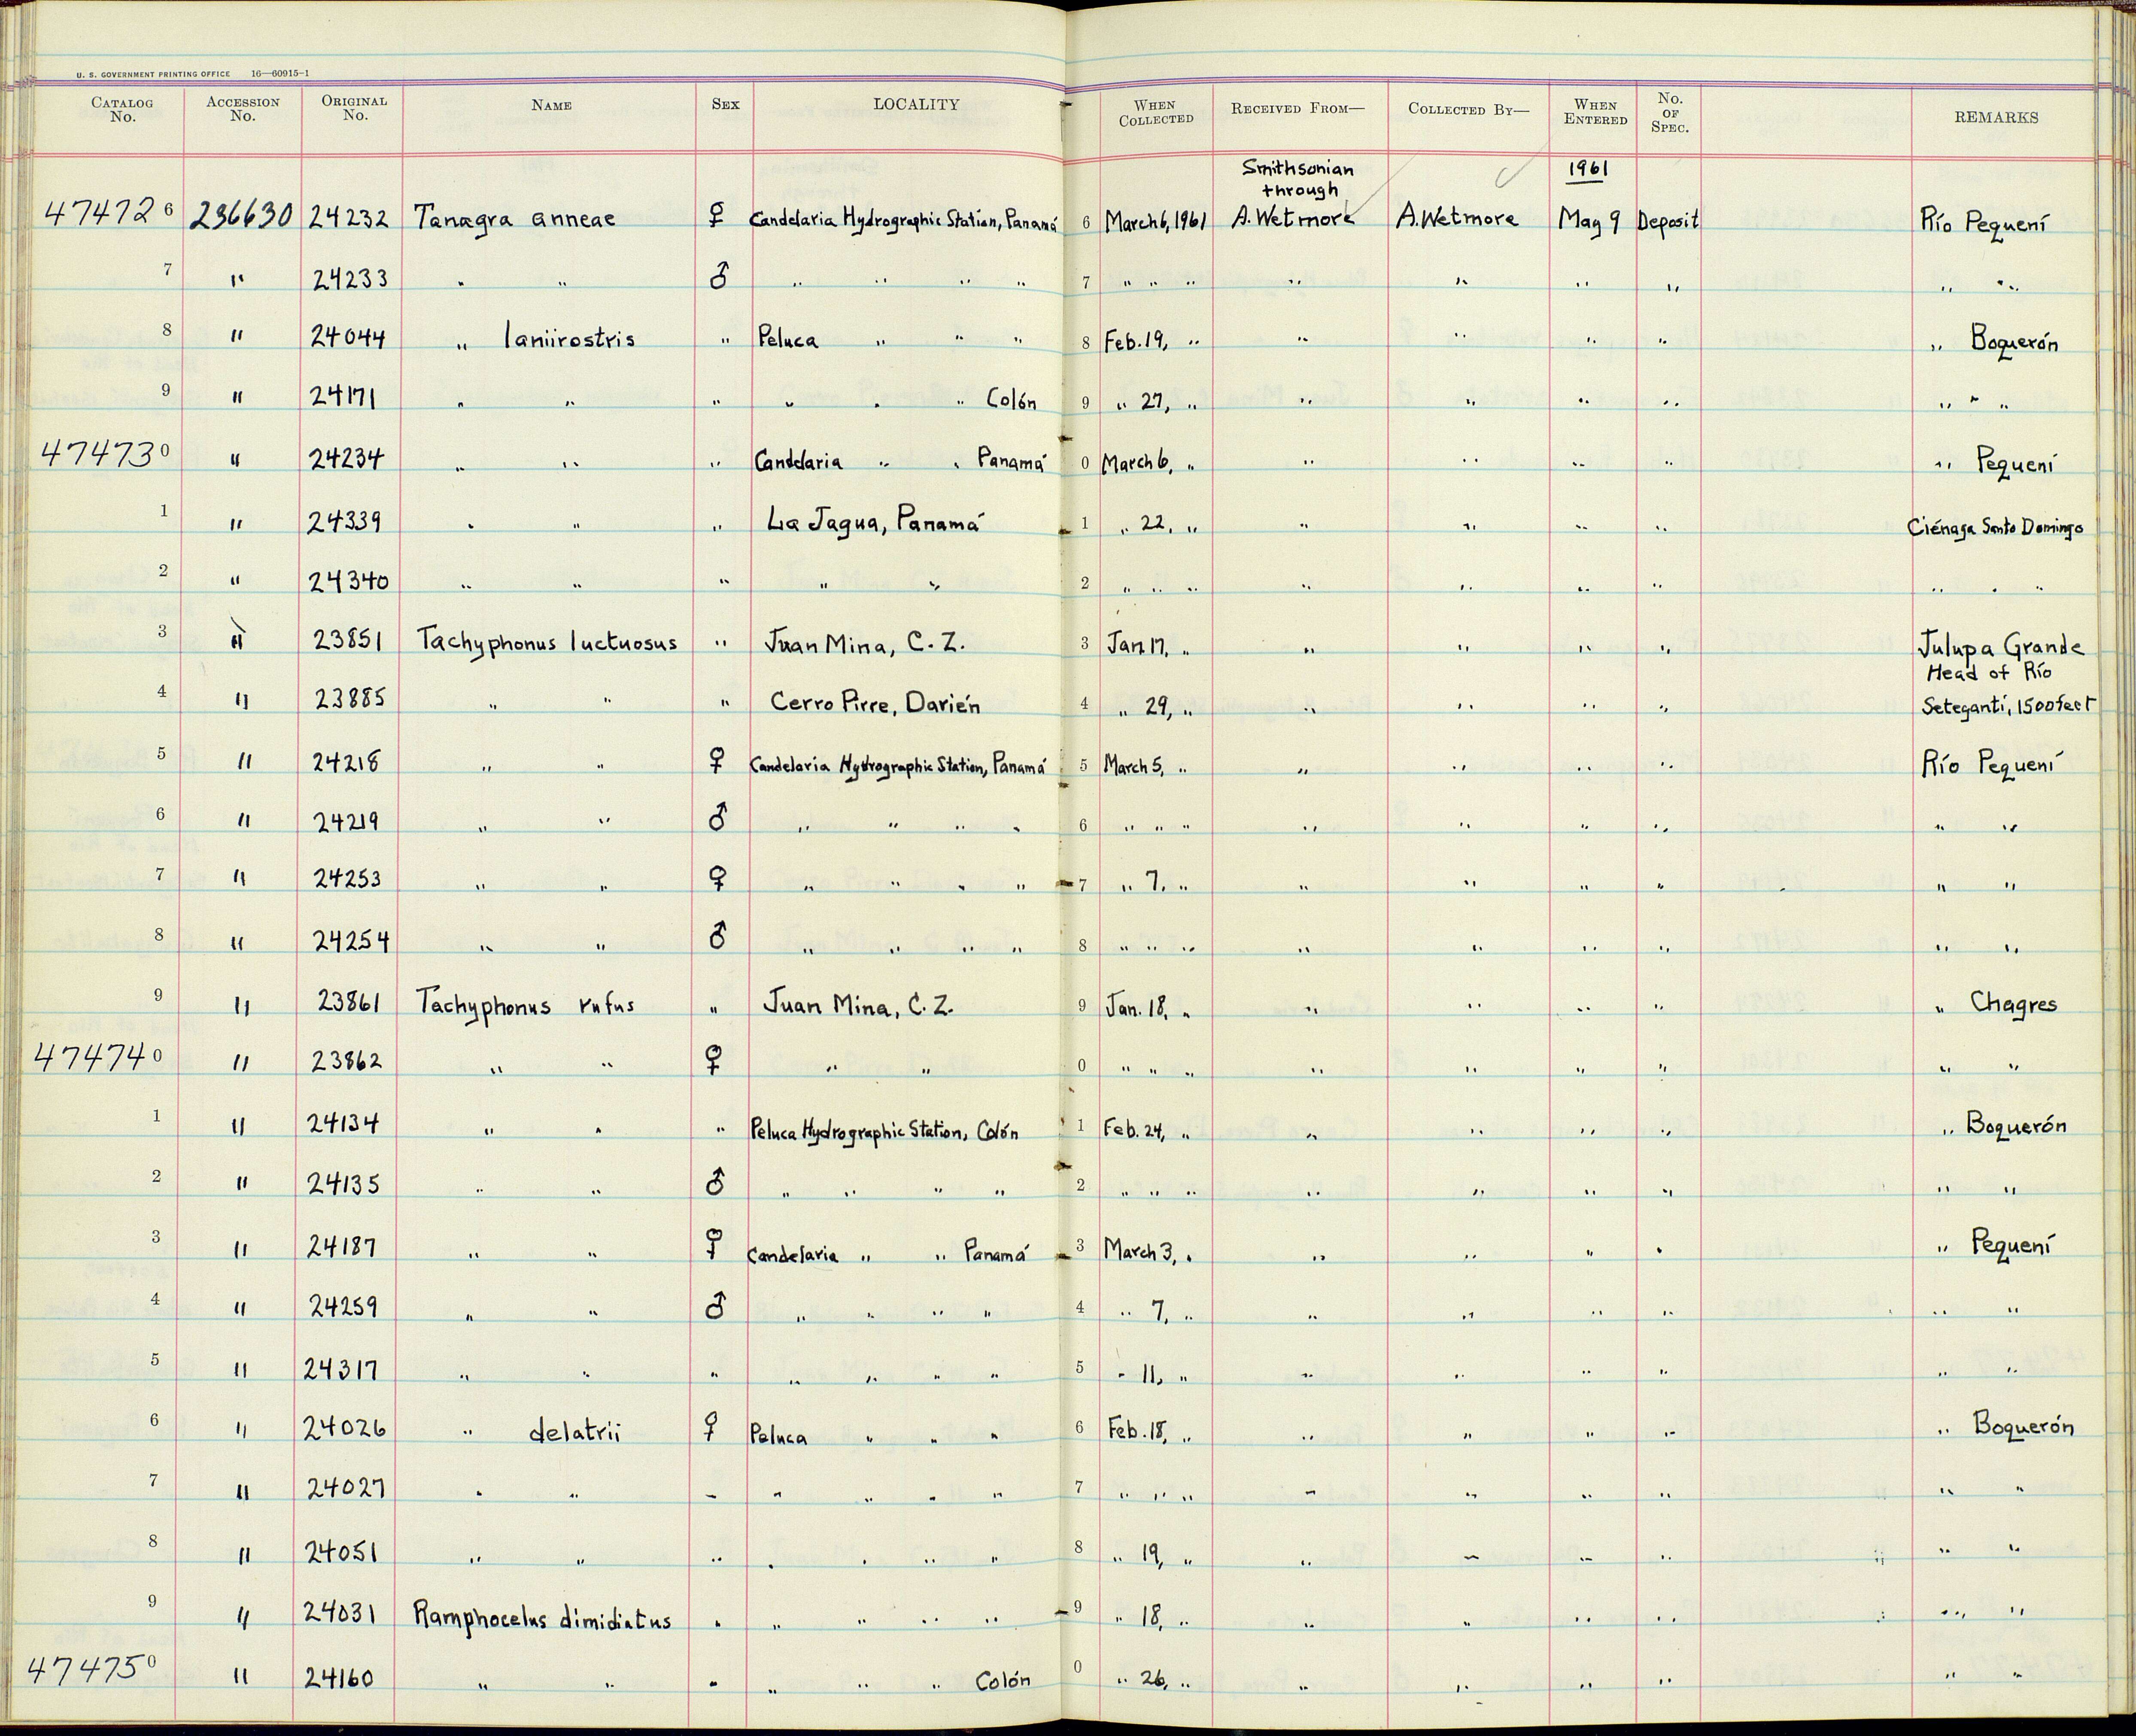 U. S. GOVERNMENT PRINTING OFFICE 16—60915-1
CATALOG No. ACCESSION No. ORIGINAL No. NAME SEX LOCALITY WHEN COLLECTED RECEIVED FROM— COLLECTED BY— WHEN ENTERED No. OF SPEC. REMARKS
Smithsonian 1961
through
474726 236630 24232 Tanagra anneae ♀ Candelaria Hydrographic Station, Panamá 6 March 6, 1961 A. Wetmore A. Wetmore May 9 Deposit Río Pequení
7 " 24233 " " ♂ " " " " 7 " " " " " " " " "
8 " 24044 " laniirostris " Peluca " " " 8 Feb. 19, " " " " " " Boquerón
9 " 24171 " " " " " " Colón 9 " 27, " " " " " " " "
474730 " 24234 " " " Candelaria " " Panamá 0 March 6, " " " " " " Pequení
1 " 24339 " " " La Jagua, Panamá 1 " 22, " " " " " Ciénaga Santo Domingo
2 " 24340 " " " " " 2 " " " " " " " " " "
3 " 23851 Tachyphonus luctuosus " Juan Mina, C. Z. 3 Jan. 17, " " " " " Julupa Grande
Head of Río
4 " 23885 " " " Cerro Pirre, Darién 4 " 29, " " " " " Setegantí, 1500 feet
5 " 24218 " " ♀ Candelaria Hydrographic Station, Panamá 5 March 5, " " " " " Río Pequení
6 " 24219 " " ♂ " " " " 6 " " " " " " " " "
7 " 24253 " " ♀ " " " " 7 " 7, " " " " " " "
8 " 24254 " " ♂ " " " " 8 " " " " " " " " "
9 " 23861 Tachyphonus rufus " Juan Mina, C. Z. 9 Jan. 18, " " " " " " Chagres
474740 " 23862 " " ♀ " " 0 " " " " " " " " "
1 " 24134 " " " Peluca Hydrographic Station, Colón 1 Feb. 24, " " " " " " Boquerón
2 " 24135 " " ♂ " " " " 2 " " " " " " " " "
3 " 24187 " " ♀ Candelaria " " Panamá 3 March 3, " " " " " " Pequení
4 " 24259 " " ♂ " " " " 4 " 7, " " " " " " "
5 " 24317 " " " " " " " 5 " 11, " " " " " " "
6 " 24026 " delatrii ♀ Peluca " " " 6 Feb. 18, " " " " " " Boquerón
7 " 24027 " " " " " " " 7 " " " " " " " " "
8 " 24051 " " " " " " " 8 " 19, " " " " " " "
9 " 24031 Ramphocelus dimidiatus " " " " " 9 " 18, " " " " " " "
474750 " 24160 " " " " " " Colón 0 " 26, " " " " " " "